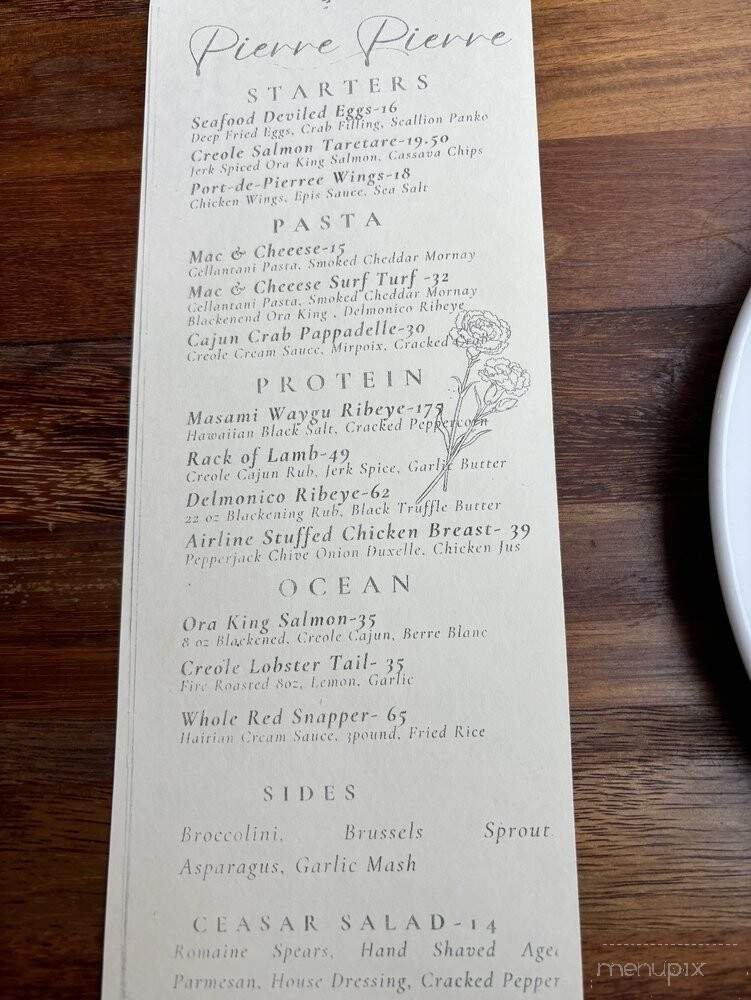 Pierre Pierre
STARTERS
Seafood Deviled Eggs-16
Deep Fried Eggs, Crab Filling, Scallion Panko
Creole Salmon Taretare-19.50
Jerk Spiced Ora King Salmon, Cassava Chips
Port-de-Pierree Wings-18
Chicken Wings, Epis Sauce, Sea Salt
PASTA
Mac & Cheeese-15
Cellantani Pasta, Smoked Cheddar Mornay
Mac & Cheeese Surf Turf -32
Cellantani Pasta, Smoked Cheddar Mornay
Blackenend Ora King , Delmonico Ribeye
Cajun Crab Pappadelle-30
Creole Cream Sauce, Mirpoix, Cracked Crab
PROTEIN
Masami Waygu Ribeye-175
Hawaiian Black Salt, Cracked Peppercorn
Rack of Lamb-49
Creole Cajun Rub, Jerk Spice, Garlic Butter
Delmonico Ribeye-62
22 oz Blackening Rub, Black Truffle Butter
Airline Stuffed Chicken Breast- 39
Pepperjack Chive Onion Duxelle, Chicken Jus
OCEAN
Ora King Salmon-35
8 oz Blackened, Creole Cajun, Berre Blanc
Creole Lobster Tail- 35
Fire Roasted 8oz, Lemon, Garlic
Whole Red Snapper- 65
Haitian Cream Sauce, 3pound, Fried Rice
SIDES
Broccolini, Brussels Sprout,
Asparagus, Garlic Mash
CEASAR SALAD-14
Romaine Spears, Hand Shaved Aged
Parmesan, House Dressing, Cracked Pepper
menupix